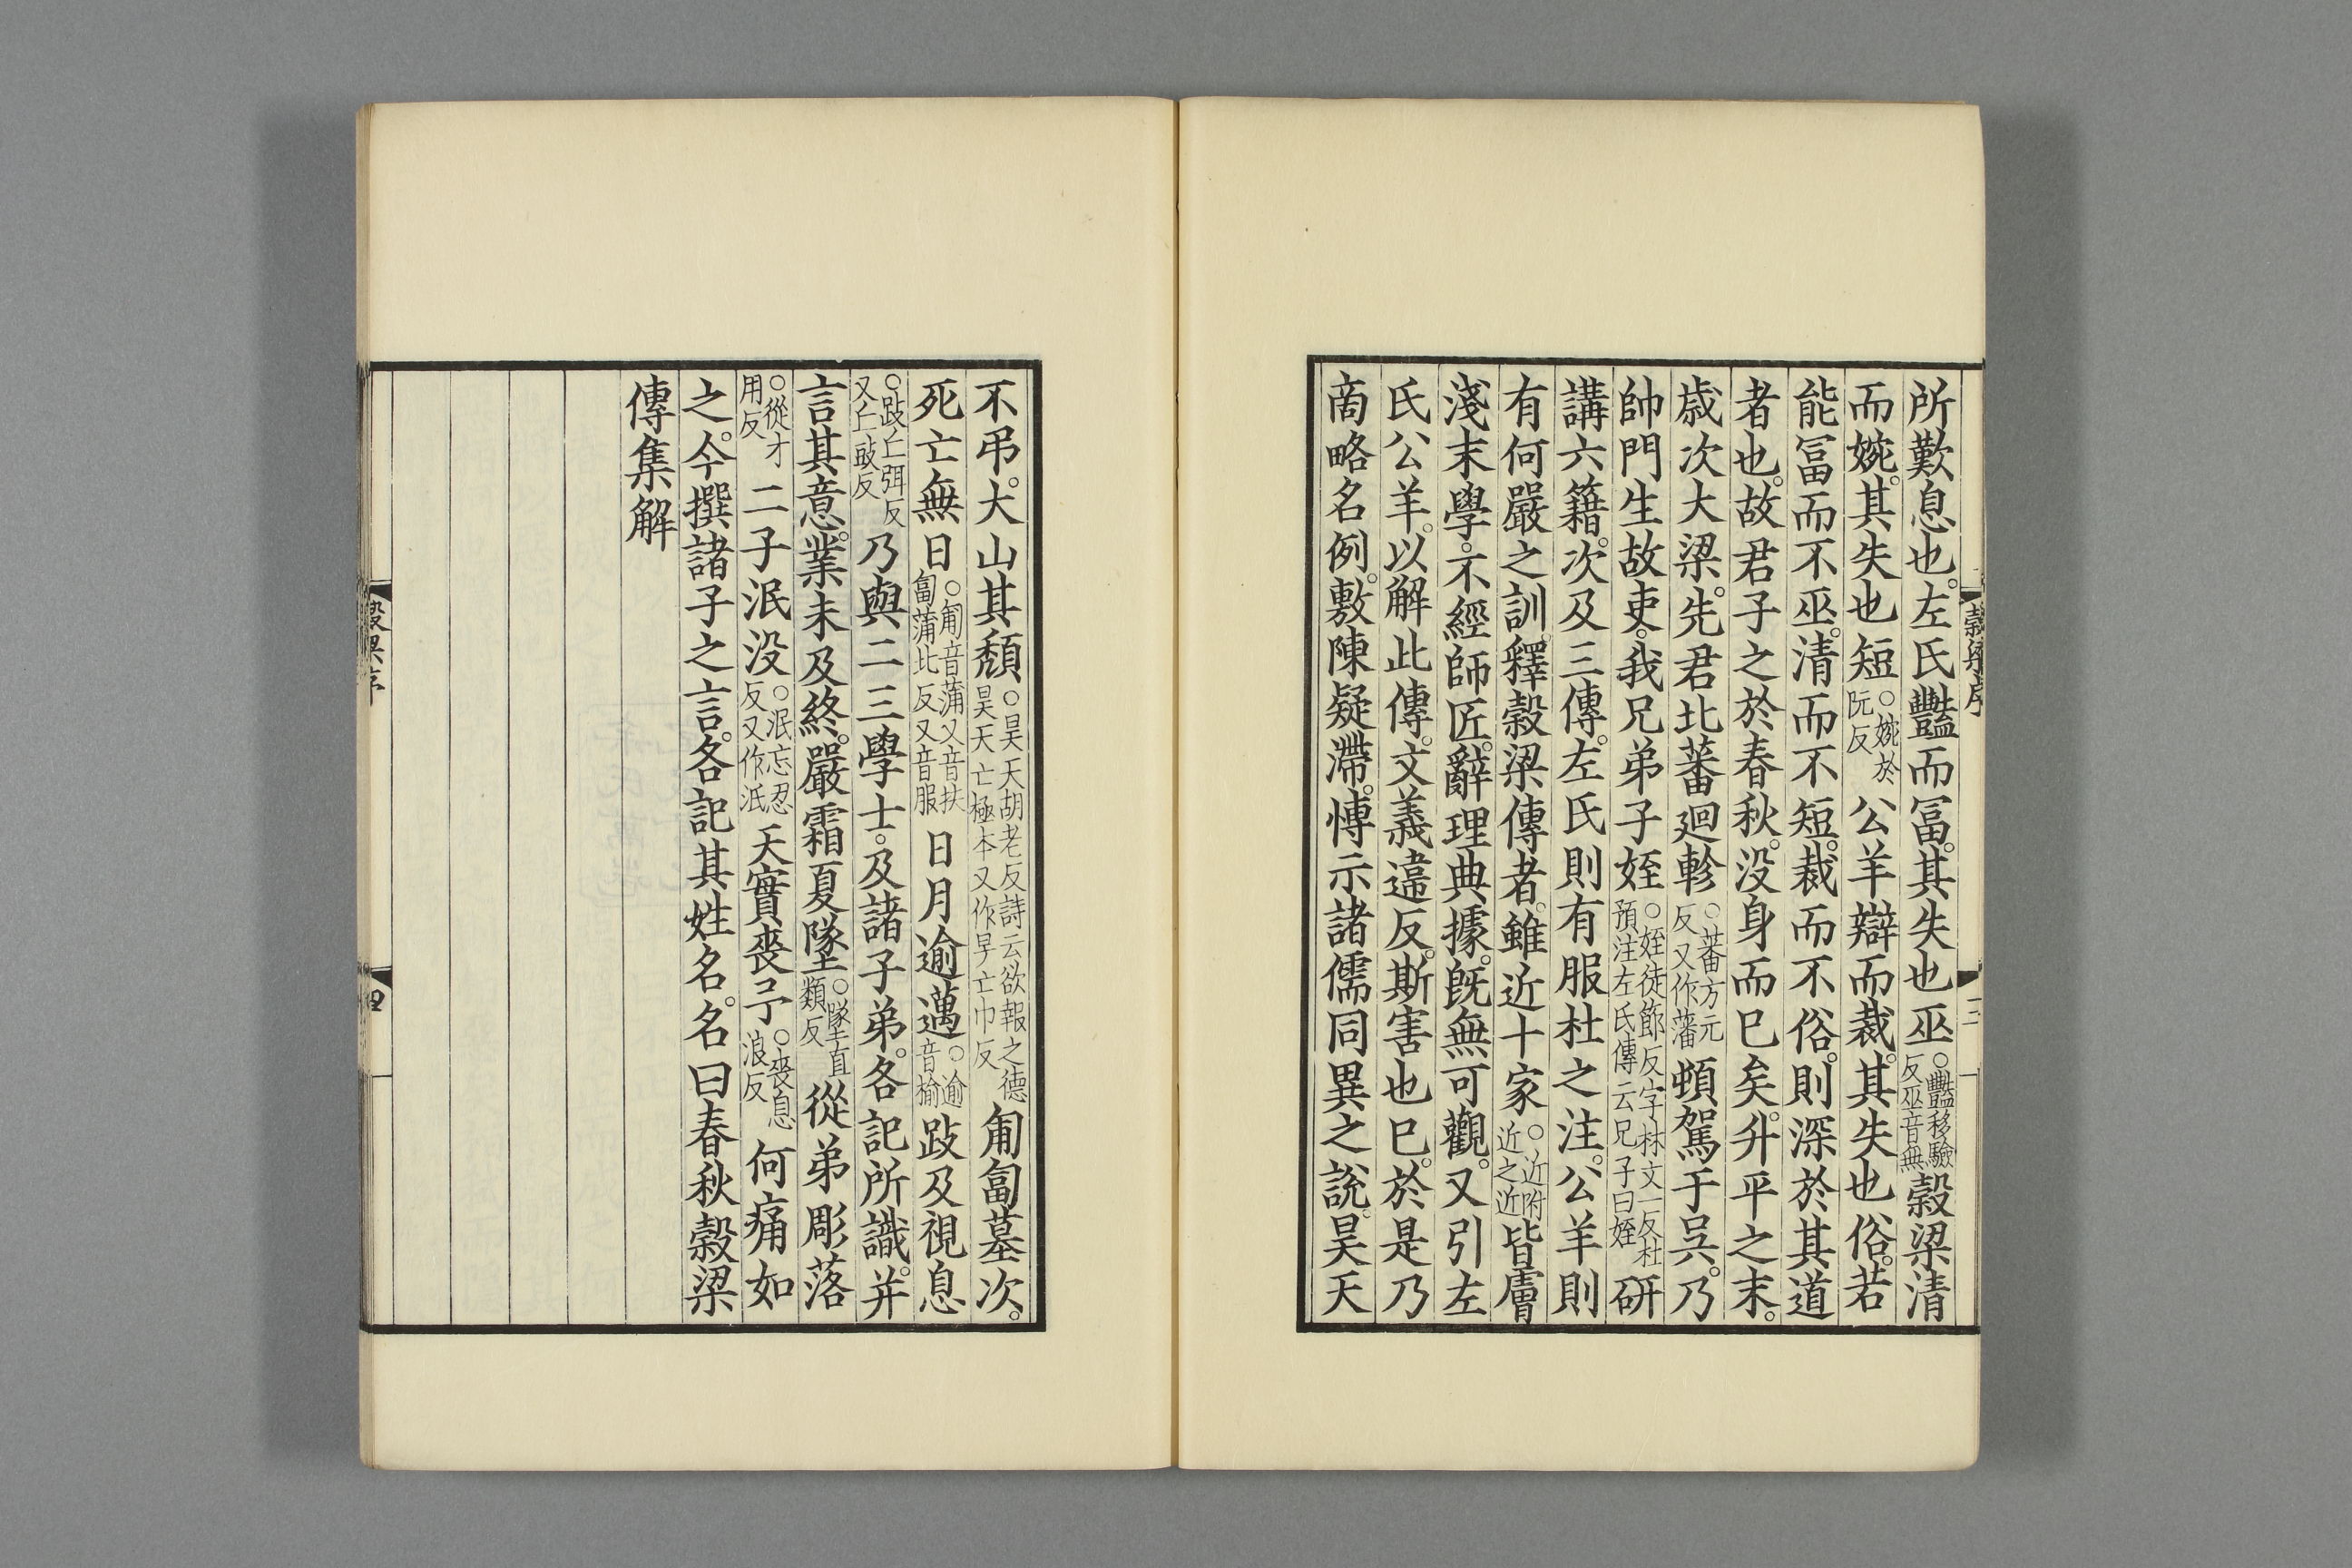 所歎息也。左氏豔而冨。其失也巫○豔移驗反巫音無穀梁清
而婉。其失也短○婉於阮反公羊辯而裁。其失也俗。若
能冨而不巫。清而不短。裁而不俗。則深於其道
者也。故君子之於春秋。没身而已矣。升平之末。
歲次大梁。先君北蕃廻軫○蕃方元反又作藩頓駕于吳。乃
帥門生故吏。我兄弟子姪○姪徒節反字林丈一反杜預注左氏傳云兄子曰姪研
講六籍。次及三傳。左氏則有服杜之注。公羊則
有何嚴之訓。釋穀梁傳者。雖近十家○近附近之近皆膚
淺末學。不經師匠。辭理典據。既無可觀。又引左
氏公羊。以解此傳。文義違反。斯害也已。於是乃
商略名例。敷陳疑滯。博示諸儒同異之說。昊天
不弔。大山其頽○昊天胡老反詩云欲報之德昊天亡極本又作旻亡巾反匍匐墓次。
死亡無日○匍音蒲又音扶匐蒲北反又音服日月逾邁○逾音榆跂及視息
○跂亡弭反又亡豉反乃與二三學士。及諸子弟。各記所識。并
言其意。業未及終。嚴霜夏墜○墜直類反從弟彫落
○從才用反二子泯没○泯忘忍反又作泯天實喪予。○喪息浪反何痛如
之。今撰諸子之言。各記其姓名。名曰春秋穀梁
傳集解
穀梁序
三
穀梁序
四